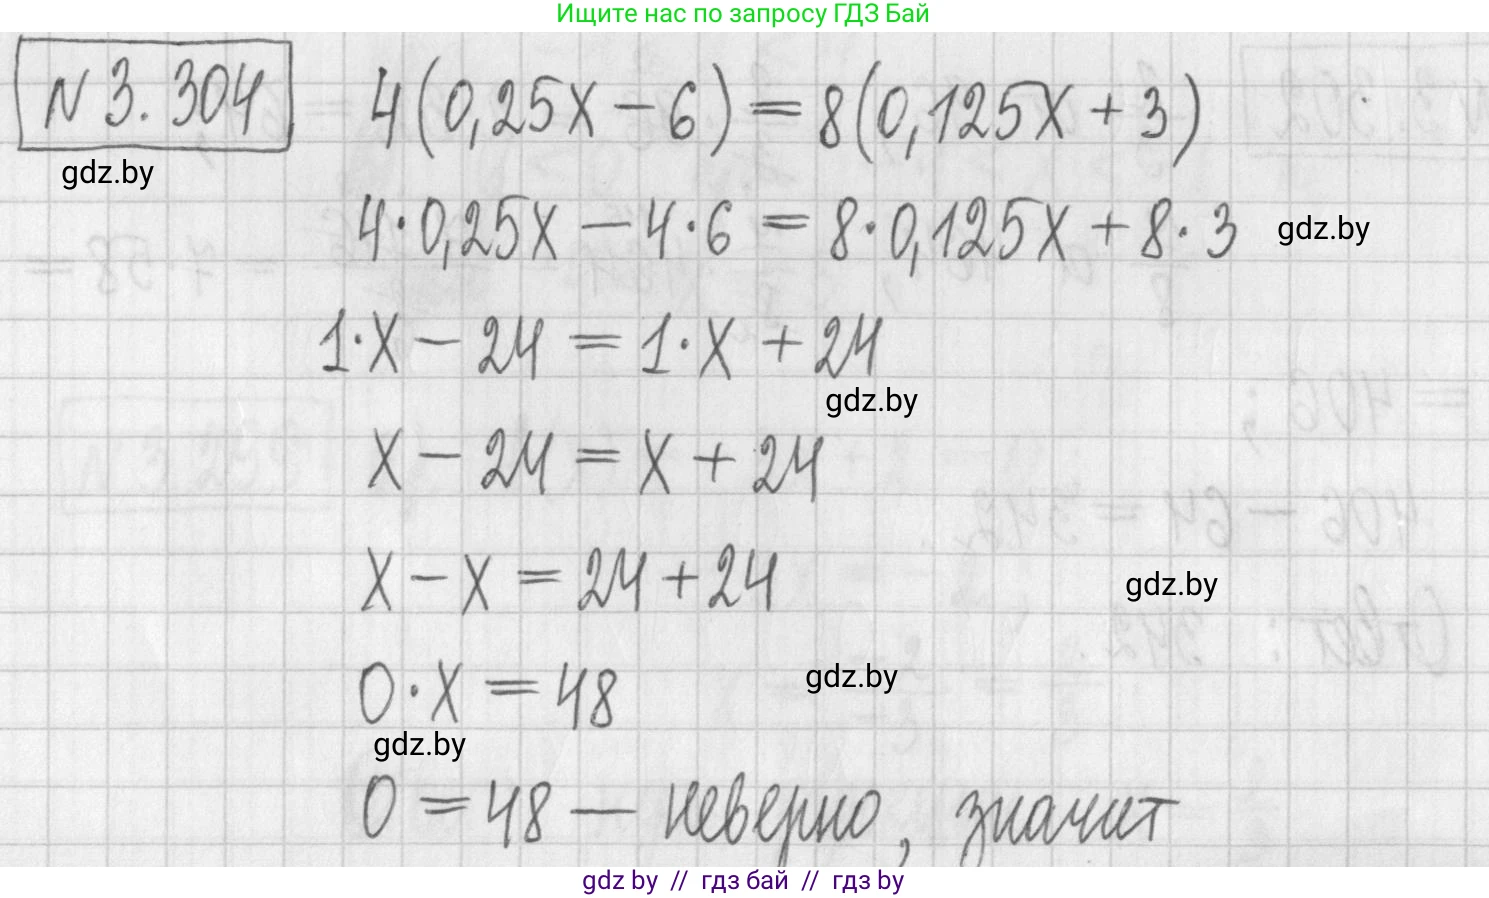 Ищите нас по запросу ГДЗ Бай
N 3.304
4(0,25x - 6) = 8(0,125x + 3)
gdz.by
4·0,25x - 4·6 = 8·0,125x + 8·3
gdz.by
1·x - 24 = 1·x + 24
gdz.by
x - 24 = x + 24
x - x = 24 + 24
gdz.by
0·x = 48
gdz.by
gdz.by
0 = 48 — неверно, значит
gdz by // гдз бай // гдз by